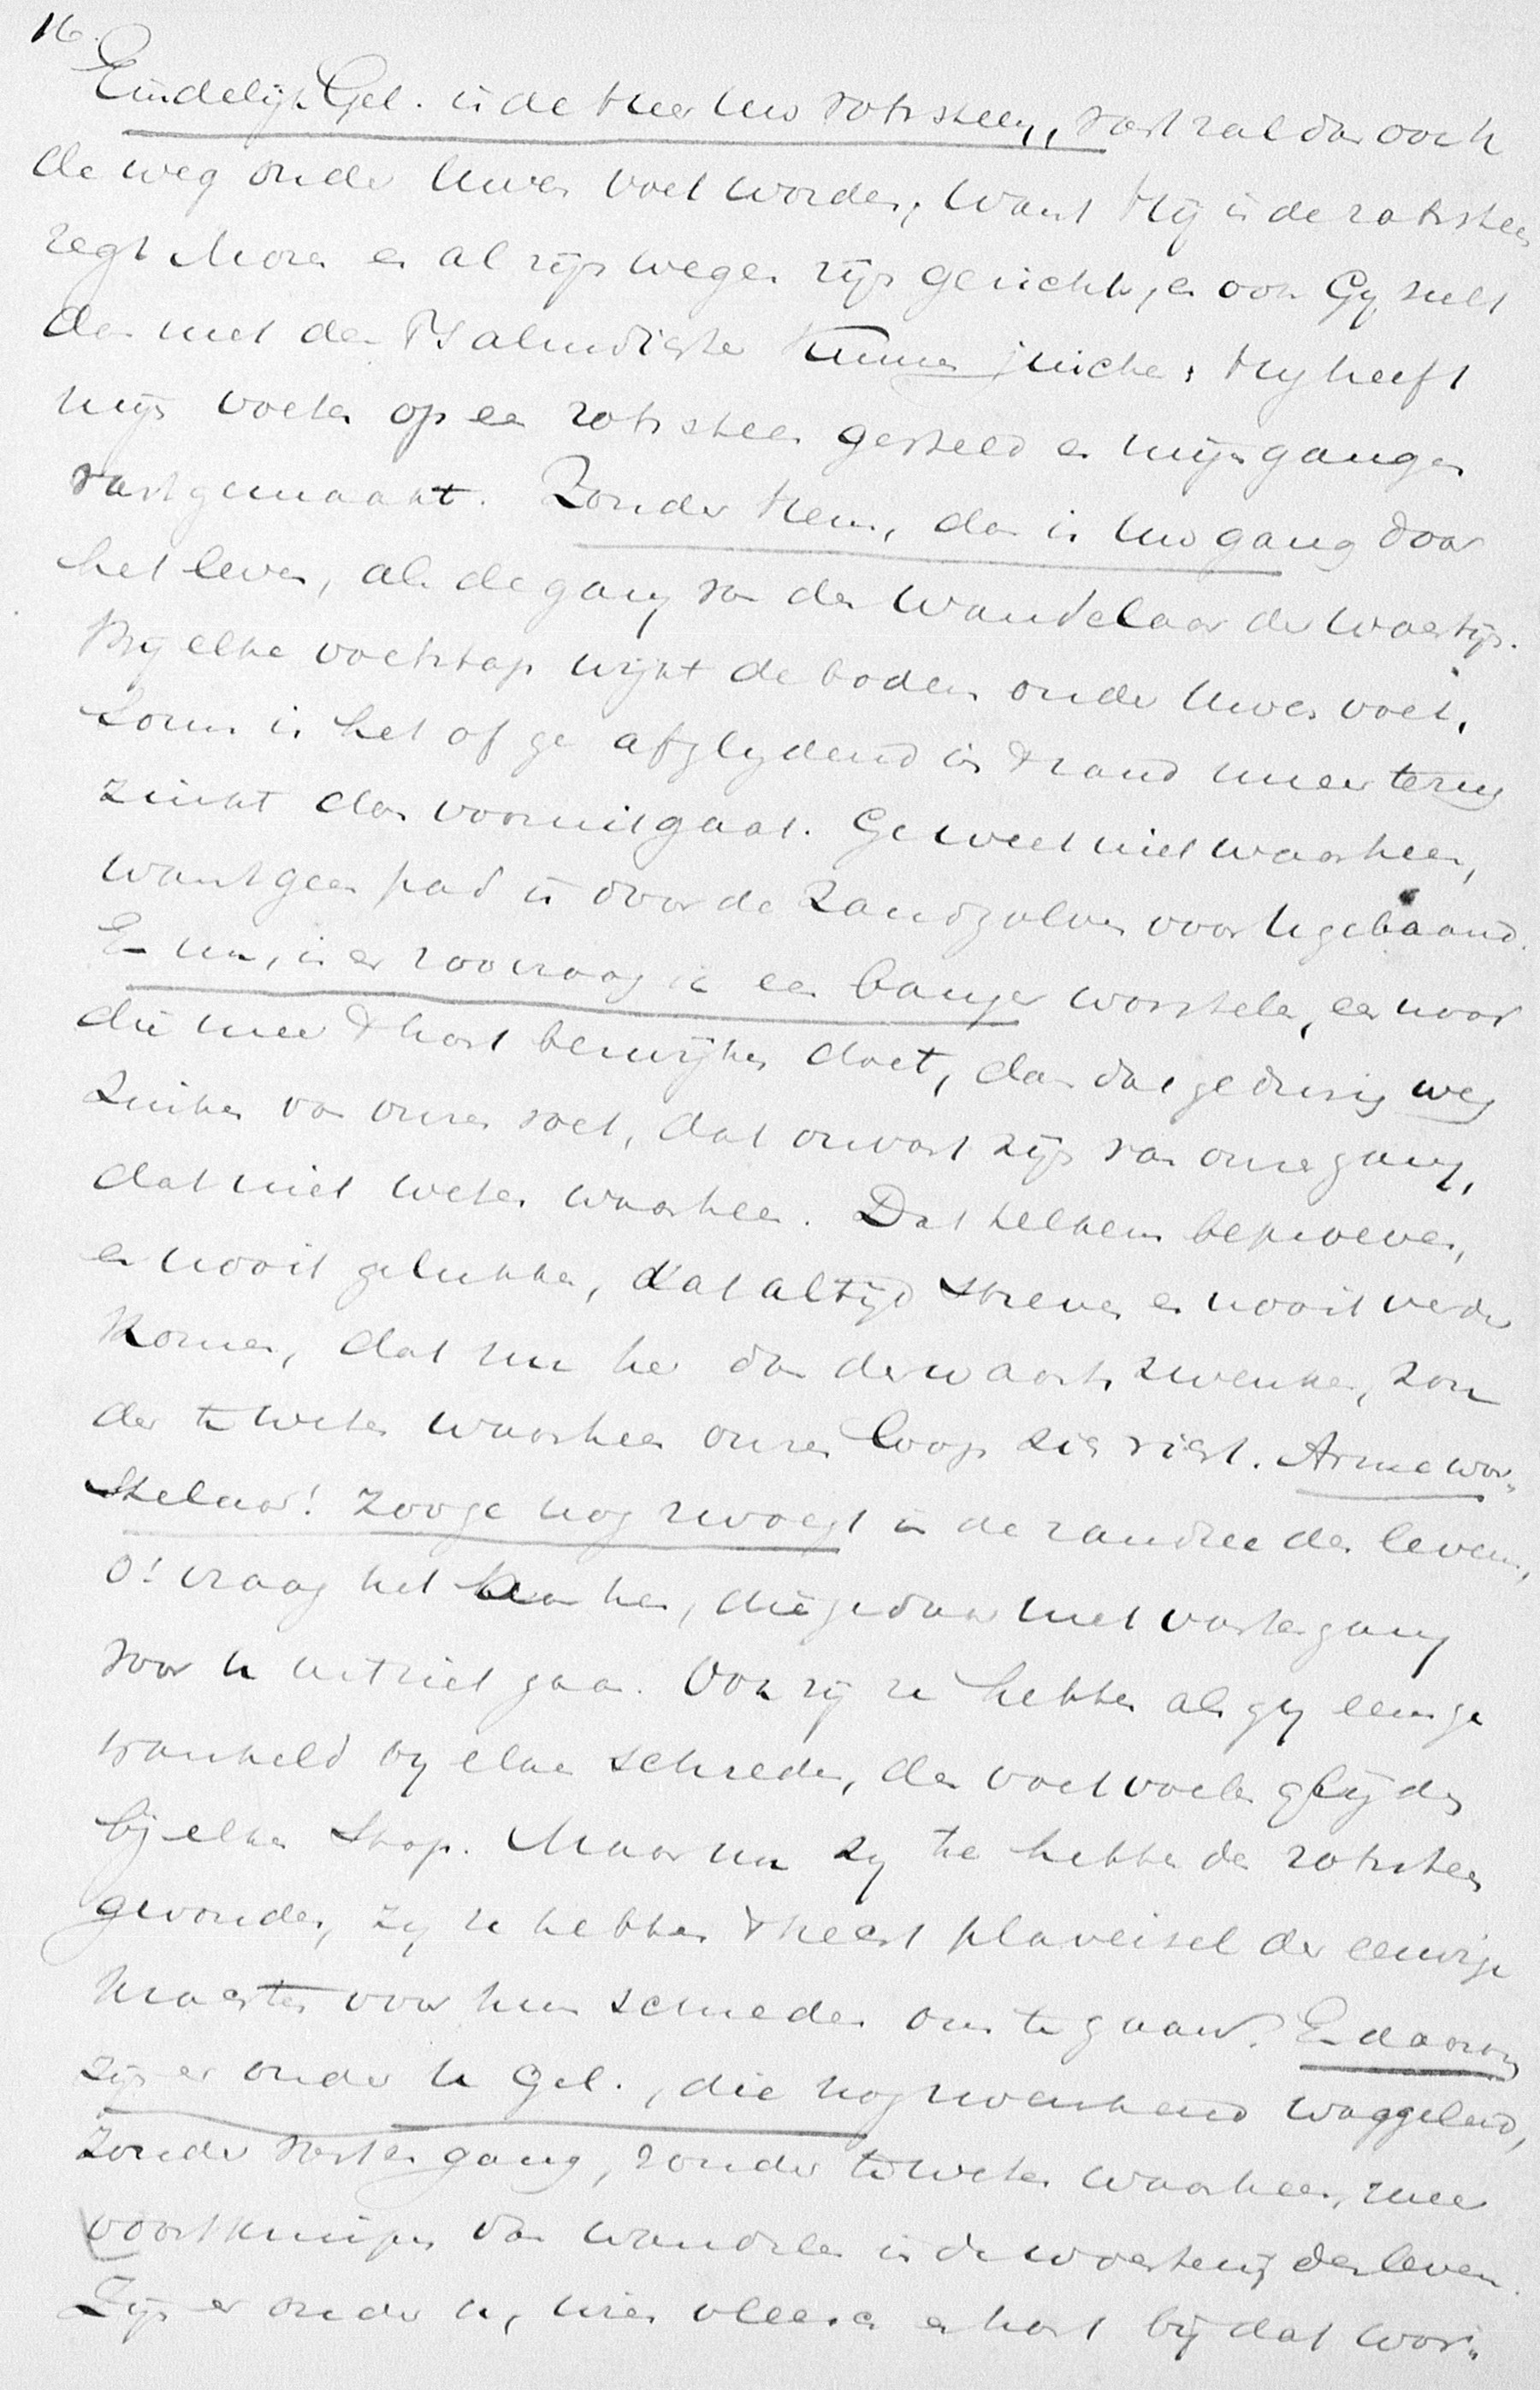 16.
Eindelijk Gel. is de Heer Uw rotssteen, vast zal dan ook
de weg onder Uwen voet worden, want Hij is de rotssteen
zegt Mozes en al zijn wegen zijn gerichte, en ook Gij zult
dan met den Psalmdichter kunnen juichen: Hij heeft
mijn voeten op een rotssteen gesteld en mijn gangen
vastgemaakt. Zonder Hem, dan is Uw gang door
het leven, als de gang van den wandelaar der woestijn.
Bij elke voetstap wijkt de bodem onder Uwen voet.
Soms is het of ge afglydend in 't zand meer terug
zinkt dan vooruitgaat. Ge weet niet waarheen,
want geen pad is door de Zandgolven voor U gebaand.
En nu, is er zoo vraag ik een banger worstelen, een
die meer 't hart bezwijken doet, dan dat gedurig weg
zinken van onzen voet, dat onvast zijn van onze gang,
dat niet weten waarheen. Dat telkens beproeven,
en nooit gelukken, dat altijd streven en nooit verder
komen, dat nu her dan derwaarts zwenken, zon
der te weten waarheen onzen loop zich richt. Arme wor„
stelaar! Zoo ge nog zwoegt in de zandzee des levens,
O! vraag het aan hen, die ge daar met vasten gang
voor U uitziet gaan. Ook zij ze hebben als gij eens ge
wankeld bij elke schrede, den voet voelen glijden
bij elken stap. Maar nu zij ze hebben den rotssteen
gevonden, zij ze hebben 't heerl plaveisel der eeuwige
voor hun schreden om te gaan. En daarom
zijn er onder U Gel., die nog wankend waggelend,
zonder vasten gang, zonder te weten waarheen, meer
voortkruipen dan wandelen in de woestenij des levens.
Zijn er onder U, wier vleesch en hart bij dat wor„